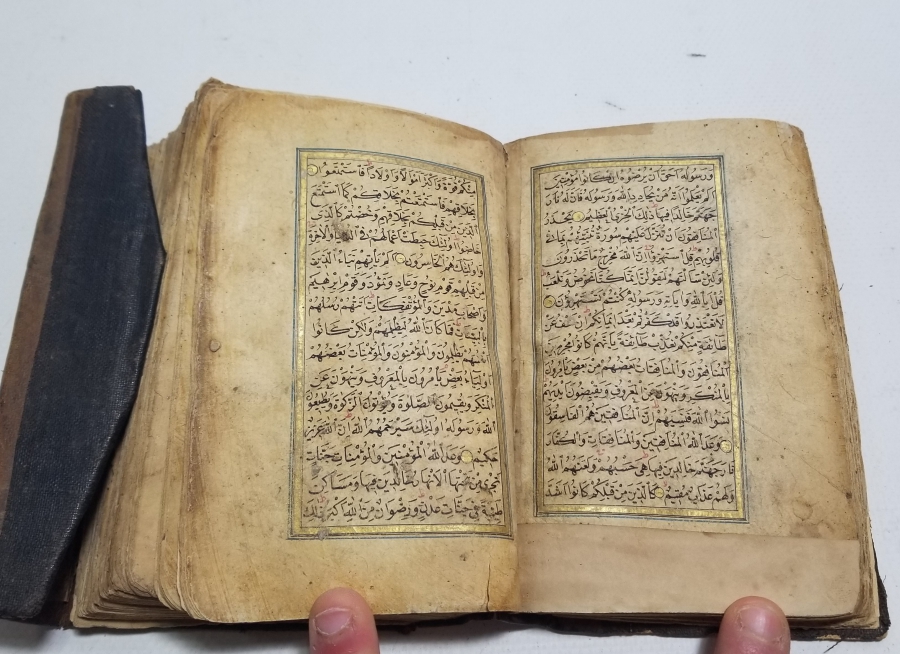 ورسوله احق ان يرضوه ان كانوا مؤمنين
الم يعلموا انه من يحادد الله ورسوله فان له نار
جهنم خالدا فيها ذلك الخزي العظيم يحذر
المنافقون ان تنزل عليهم سورة تنبئهم بما في
قلوبهم قل استهزؤا ان الله مخرج ما تحذرون
ولئن سالتهم ليقولن انما كنا نخوض ونلعب
قل ابالله واياته ورسوله كنتم تستهزؤن
لا تعتذروا قد كفرتم بعد ايمانكم ان نعف عن
طائفة منكم نعذب طائفة بانهم كانوا مجرمين
المنافقون والمنافقات بعضهم من بعض يأمرون
بالمنكر وينهون عن المعروف ويقبضون ايديهم
نسوا الله فنسيهم ان المنافقين هم الفاسقون
وعد الله المنافقين والمنافقات والكفار
نار جهنم خالدين فيها هي حسبهم ولعنهم الله
ولهم عذاب مقيم كالذين من قبلكم كانوا اشد
منكم قوة واكثر اموالا واولادا فاستمتعوا
بخلاقهم فاستمتعتم بخلاقكم كما استمتع
الذين من قبلكم بخلاقهم وخضتم كالذي
خاضوا اولئك حبطت اعمالهم في الدنيا والاخرة
واولئك هم الخاسرون الم يأتهم نبأ الذين
من قبلهم قوم نوح وعاد وثمود وقوم ابرهيم
واصحاب مدين والمؤتفكات اتتهم رسلهم
بالبينات فما كان الله ليظلمهم ولكن كانوا
انفسهم يظلمون والمؤمنون والمؤمنات بعضهم
اولياء بعض يأمرون بالمعروف وينهون عن
المنكر ويقيمون الصلوة ويؤتون الزكوة ويطيعون
الله ورسوله اولئك سيرحمهم الله ان الله عزيز
حكيم وعد الله المؤمنين والمؤمنات جنات
تجري من تحتها الانهار خالدين فيها ومساكن
طيبة في جنات عدن ورضوان من الله اكبر ذلك